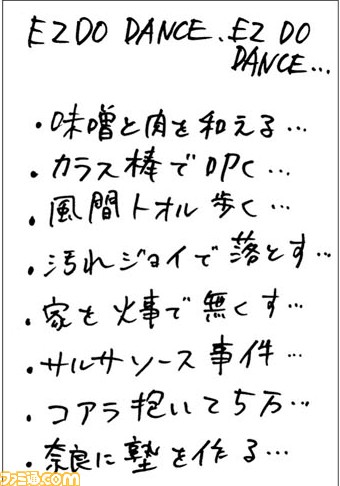 EZ DO DANCE、EZ DO
DANCE…
・味噌と肉を和える…
・カラス棒で叩く…
・風間トオル歩く…
・汚れジョイで落とす…
・家を火事で無くす…
・サルサソース事件…
・コアラ抱いて5万…
・奈良に塾を作る…
ファミ通.com